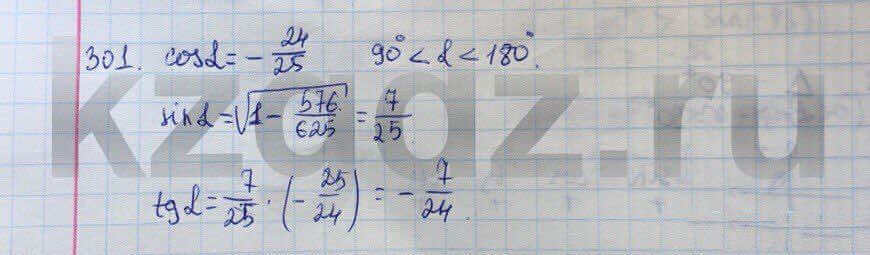 301. cosα = - 24/25   90° < α < 180°.
sinα = √(1 - 576/625) = 7/25.
tgα = 7/25 · (- 25/24) = - 7/24.
kzgdz.ru